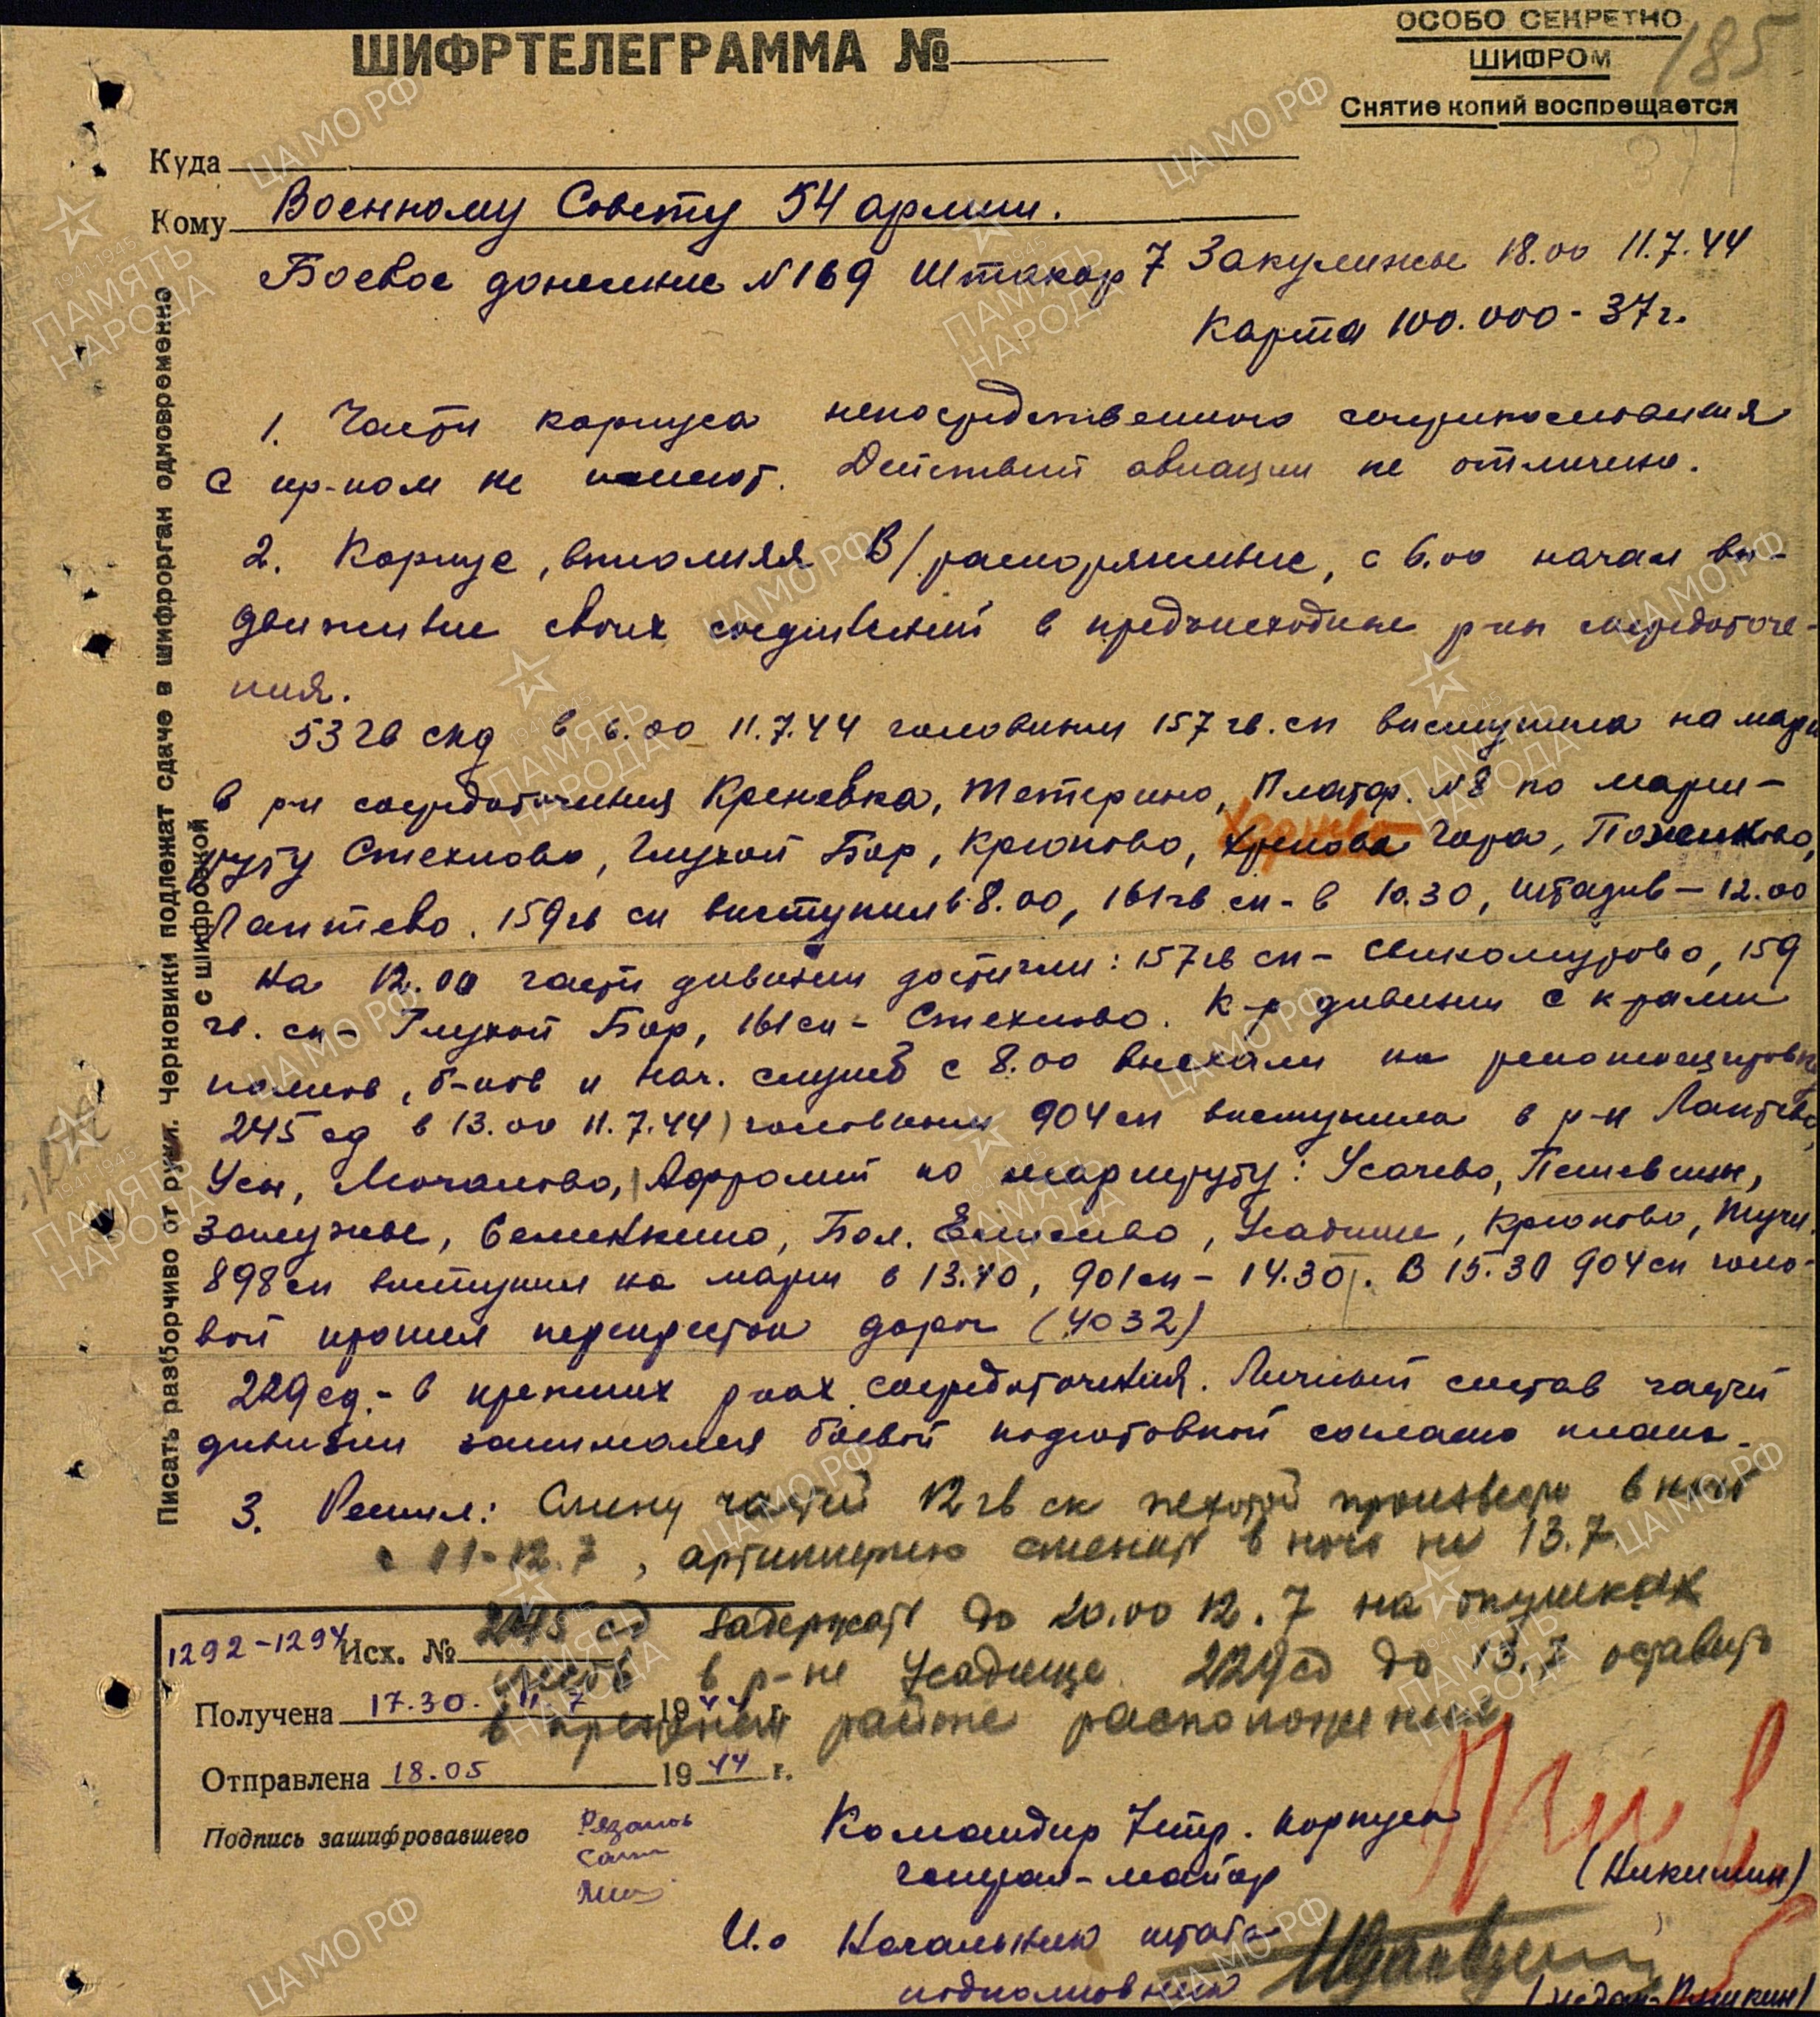 ОСОБО СЕКРЕТНО
185
ШИФРТЕЛЕГРАММА №
ШИФРОМ
Снятие копий воспрещается
377
Куда
Кому Военному Совету 54 армии.
Боевое донесение N169 Штакор 7 Закулижье 18.00 11.7.44
Карта 100.000 - 37г.
1. Части корпуса непосредственного соприкосновения
с пр-ком не имеют. Действий авиации не отмечено.
2. Корпус, выполняя В/распоряжение, с 6.00 начал вы-
движение своих соединений в предъисходные р-ны сосредоточе-
ния.
53 гв скд в 6.00 11.7.44 головным 157 гв. сп выступила на марш
в р-н сосредоточения Креневка, Тетерино, Платф. N8 по марш-
руту Стехново, Глухой Бор, Крюково, Хренова Гора,
Лаптево. 159 гв сп выступил в 8.00, 161 гв сп - в 10.30, штадив - 12.00
На 12.00 части дивизии достигли: 157 гв сп - 159
гв. сп - Глухой Бор, 161 сп - Стехново. К-р дивизии с к-рами
полков, б-нов и нач. служб с 8.00 выехали на рекогносцировку
245 сд в 13.00 11.7.44 головным 904 сп выступила в р-н Лаптево,
Усы, Мочалово, по маршруту: Усачево,
Велишкино, Бол. Усадище, Крюково,
898 сп выступил на марш в 13.40, 901 сп - 14.30. В 15.30 904 сп голо-
вой прошел перекресток дорог (4032)
229 сд. - в прежних р-нах сосредоточения. Личный состав частей
дивизии занимался боевой подготовкой согласно плана.
3. Решил: Смену частей 12 гв ск пехотой произвести в ночь
с 11-12.7, артиллерию сменить в ночь на 13.7
245 сд задержать до 20.00 12.7 на опушках
леств в р-не Усадище. 229 сд до 13.7 оставить
в прежнем районе расположения.
1292-1294 Исх. №
Получена 17.30. 11.7 1944 г.
Отправлена 18.05 1944 г.
Подпись зашифровавшего Рязанов
Командир 7 стр. корпуса
генерал-майор (Никишин)
И.о Начальник штаба
подполковник
Писать разборчиво от руки. Черновики подлежат сдаче в шифрорган одновременно
с шифровкой
ЦА МО РФ
ПАМЯТЬ
НАРОДА
1941-1945